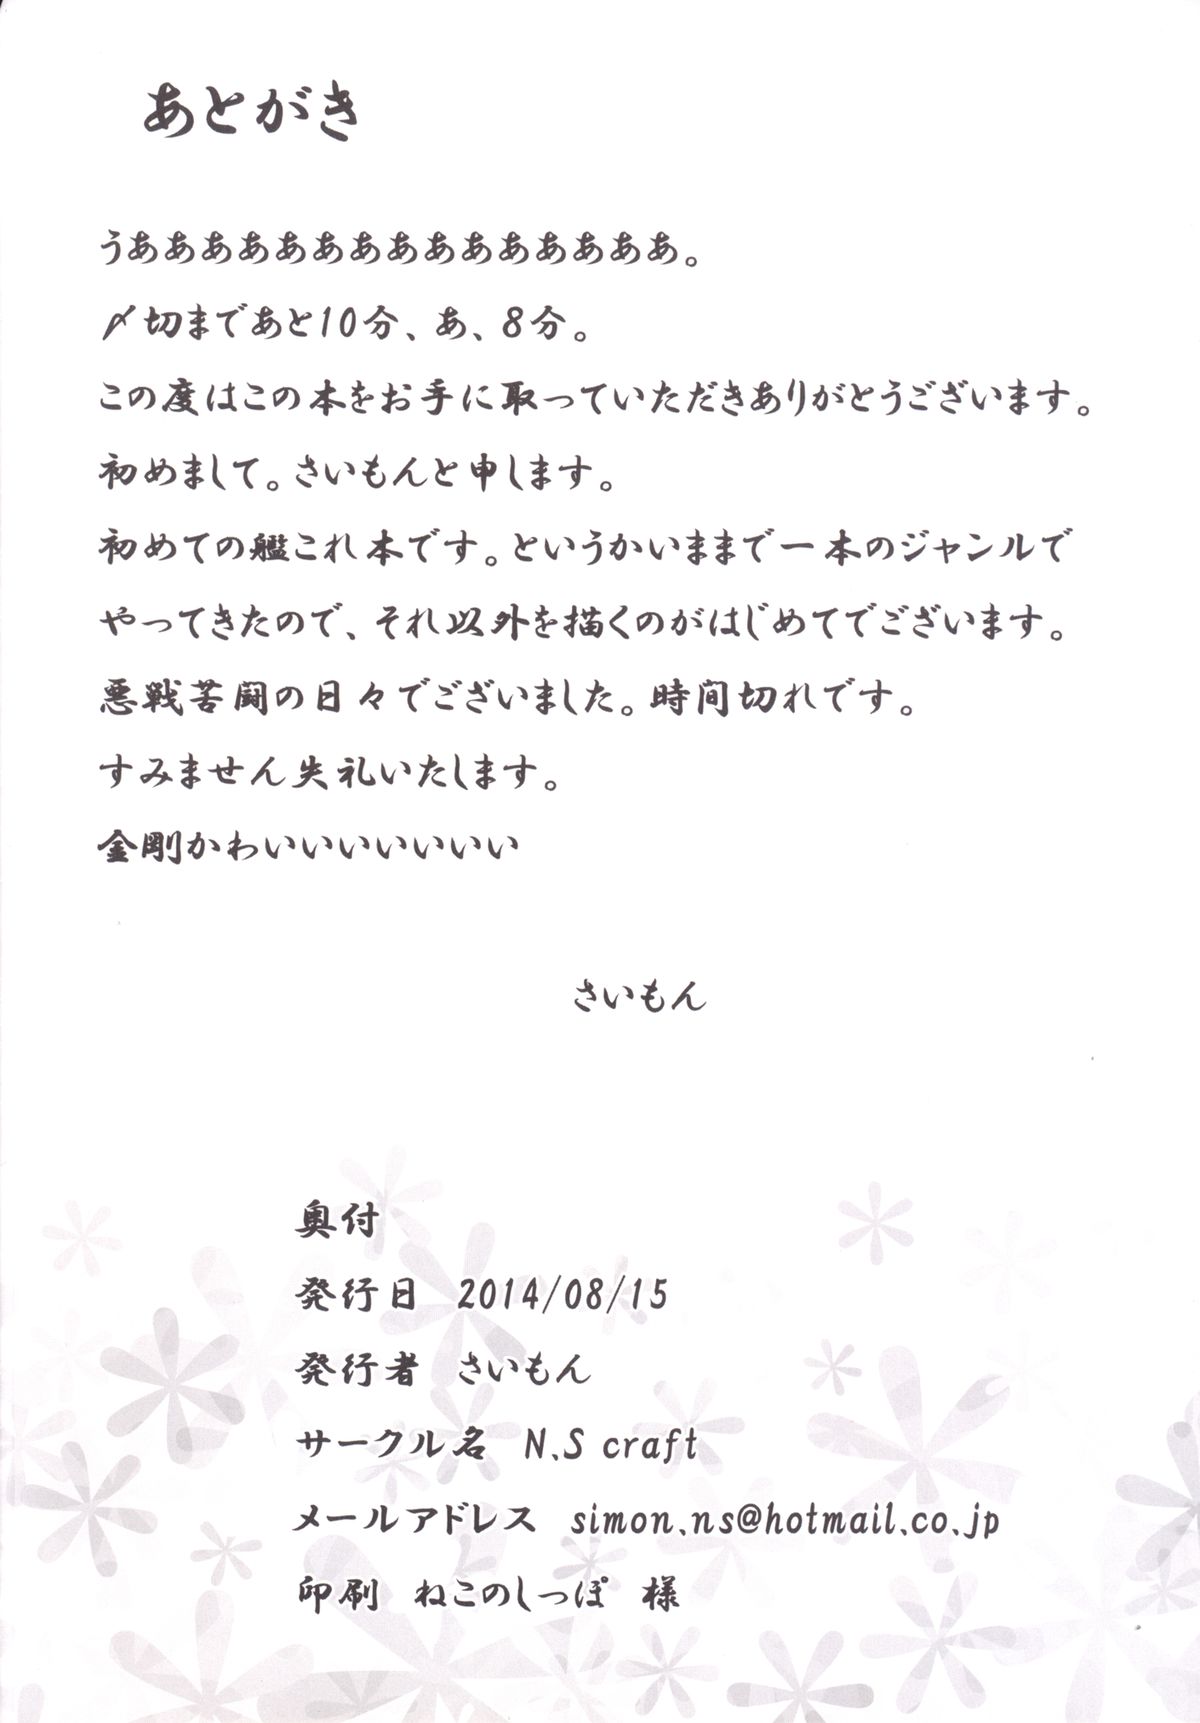 あとがき
うあああああああああああああああ。
〆切まであと10分、あ、8分。
この度はこの本をお手に取っていただきありがとうございます。
初めまして。さいもんと申します。
初めての艦これ本です。というかいままで一本のジャンルで
やってきたので、それ以外を描くのがはじめてでございます。
悪戦苦闘の日々でございました。時間切れです。
すみません失礼いたします。
金剛かわいいいいいいいい
さいもん
奥付
発行日　2014/08/15
発行者　さいもん
サークル名　N.S craft
メールアドレス　simon.ns@hotmail.co.jp
印刷　ねこのしっぽ　様